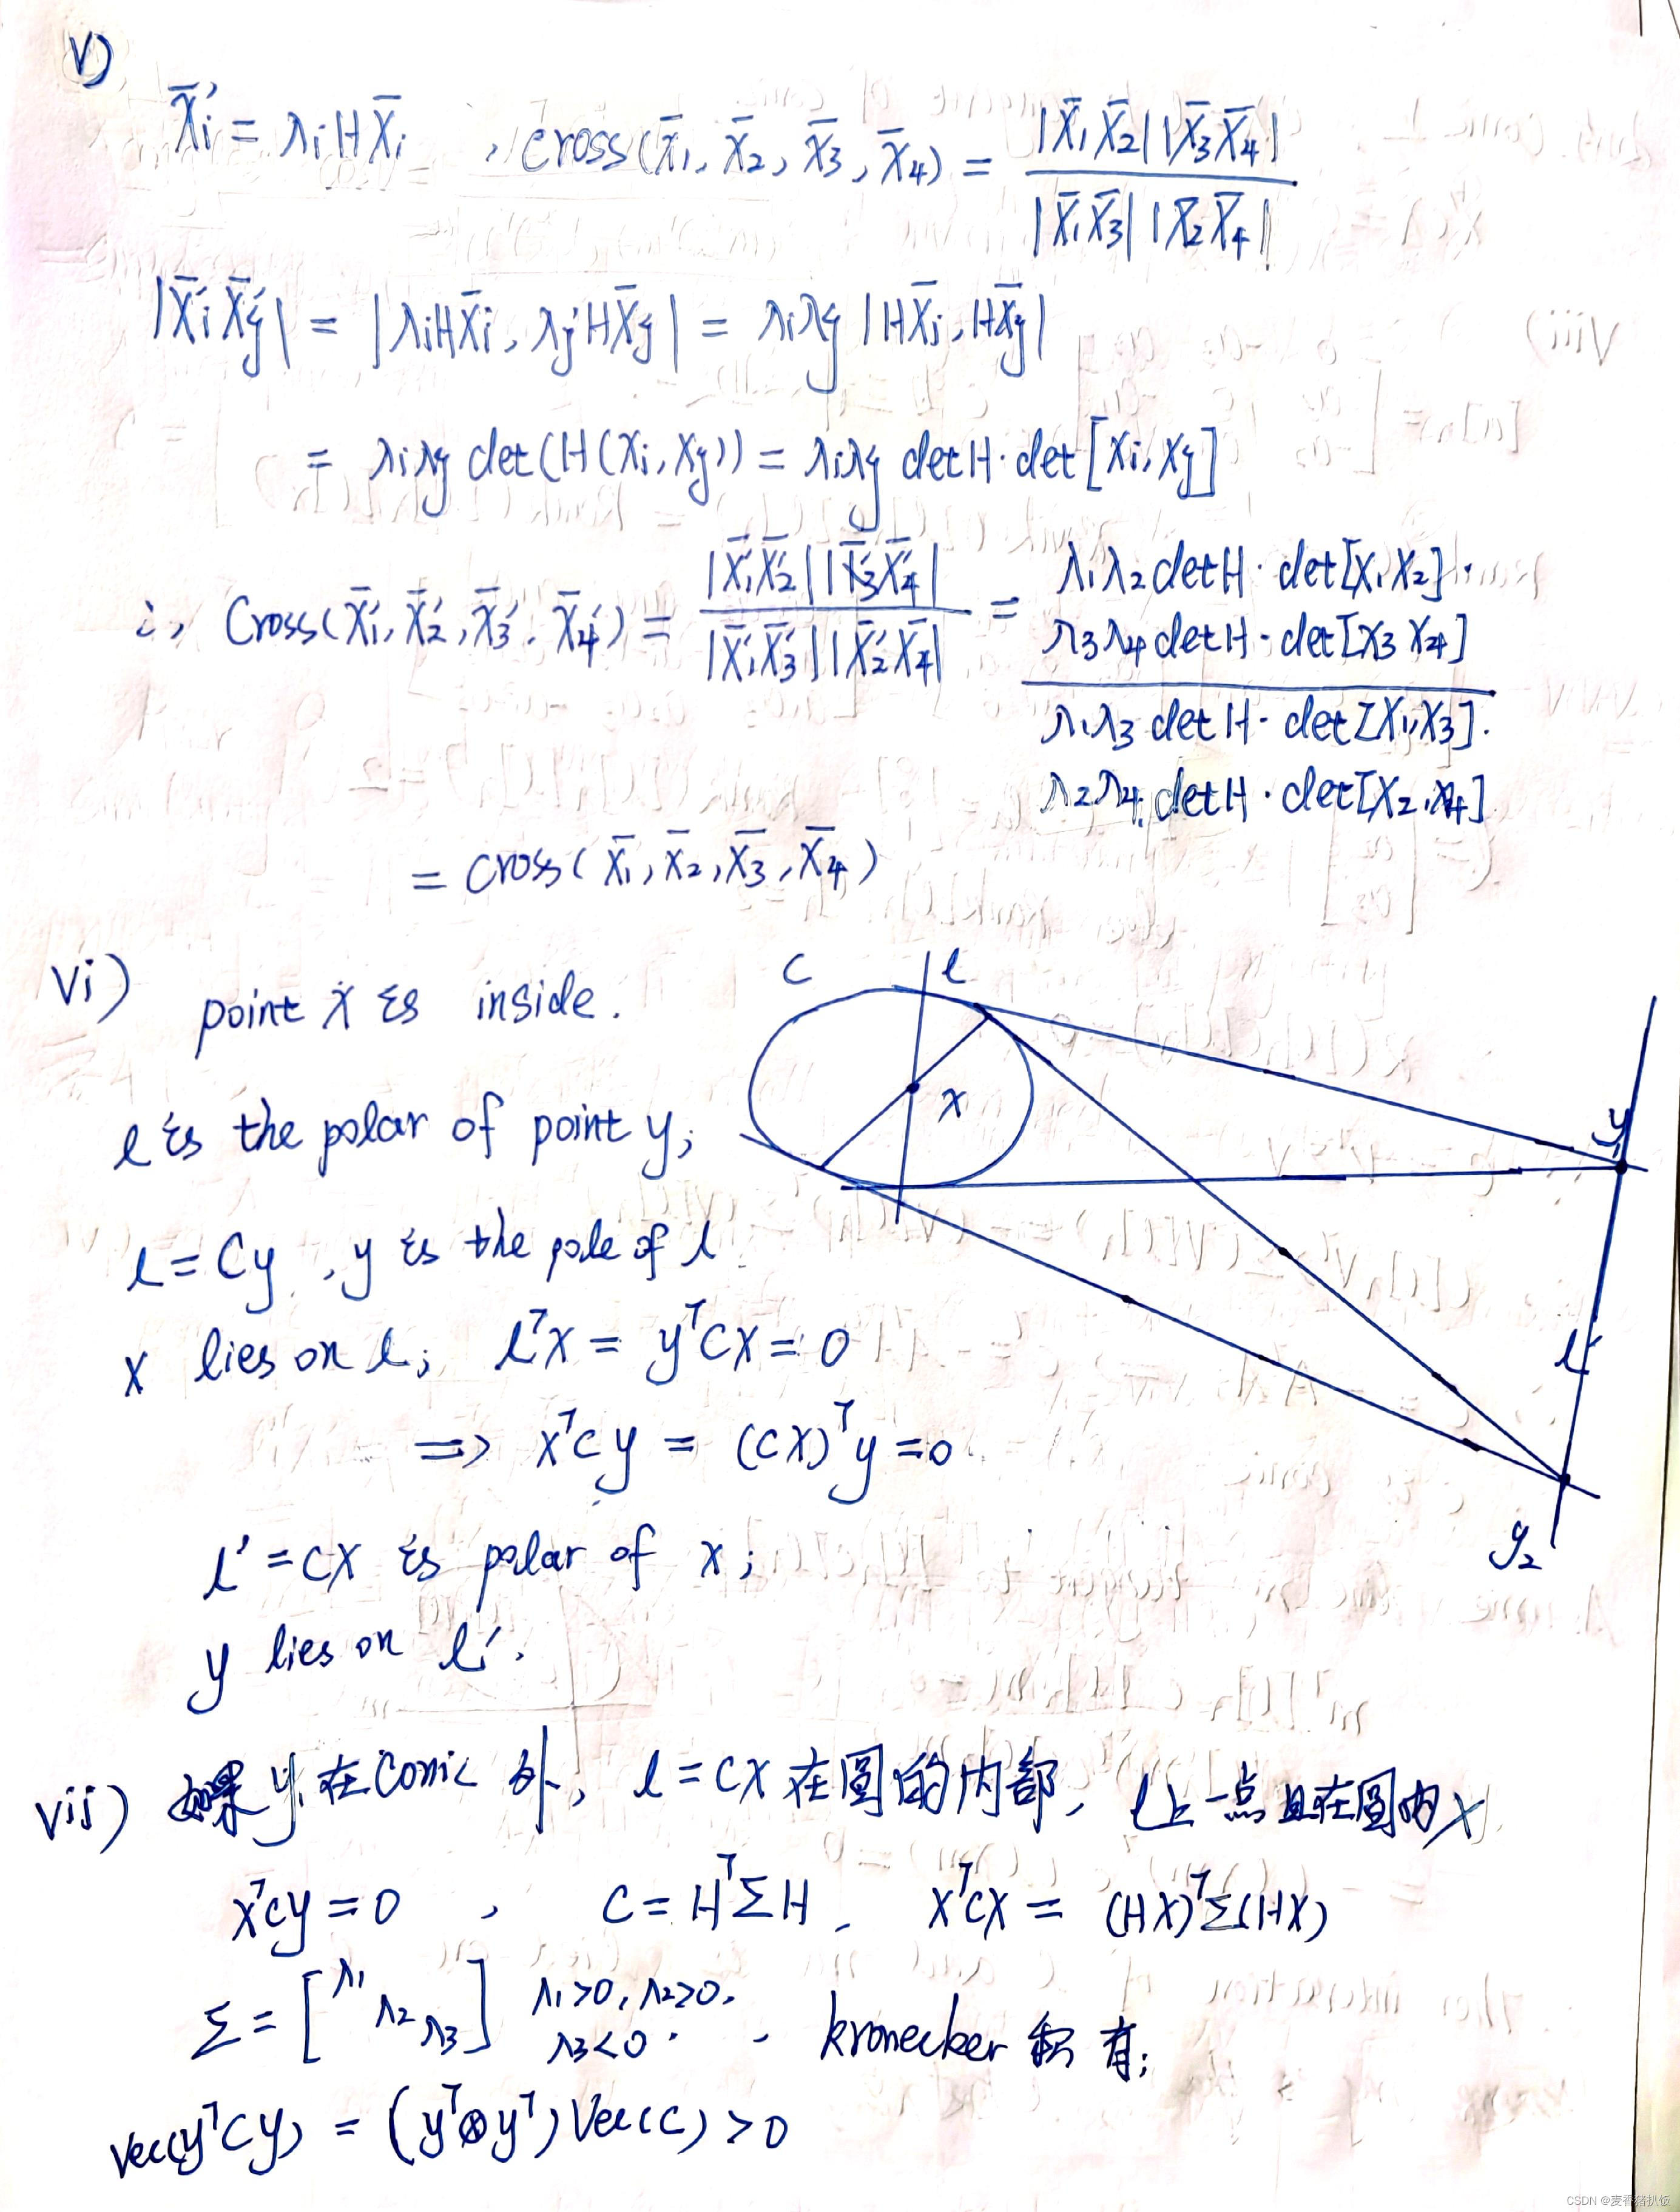 V)
x̄'ᵢ = λᵢHx̄ᵢ , cross(x̄₁, x̄₂, x̄₃, x̄₄) = |x̄₁x̄₂||x̄₃x̄₄| / |x̄₁x̄₃||x̄₂x̄₄|
|x̄'ᵢx̄'ⱼ| = |λᵢHx̄ᵢ, λⱼHx̄ⱼ| = λᵢλⱼ|Hx̄ᵢ, Hx̄ⱼ|
= λᵢλⱼ det(H(xᵢ, xⱼ)) = λᵢλⱼ detH · det[xᵢ, xⱼ]
∴ Cross(x̄'₁, x̄'₂, x̄'₃, x̄'₄) = |x̄'₁x̄'₂||x̄'₃x̄'₄| / |x̄'₁x̄'₃||x̄'₂x̄'₄| = λ₁λ₂detH · det[x₁x₂] · λ₃λ₄detH · det[x₃x₄] / λ₁λ₃ detH · det[x₁,x₃] · λ₂λ₄ detH · det[x₂,x₄]
= cross(x̄₁, x̄₂, x̄₃, x̄₄)
Vi) point x is inside.
C
l
x
y₁
l'
y₂
l is the polar of point y;
l = Cy , y is the pole of l
x lies on l; lᵀx = yᵀCx = 0
=> xᵀCy = (Cx)ᵀy = 0
l' = Cx is polar of x;
y lies on l'.
Vii) 如果y在Conic 外, l = Cx 在圆的内部, l上一点且在圆内x
xᵀCy = 0 , C = HᵀΣH , xᵀCx = (Hx)ᵀΣ(Hx)
Σ = [λ₁ λ₂ λ₃] λ₁>0, λ₂>0, λ₃<0 . kronecker 积有;
Vec(yᵀCy) = (yᵀ⊗yᵀ)Vec(C) > 0
CSDN @麦香猪扒饭